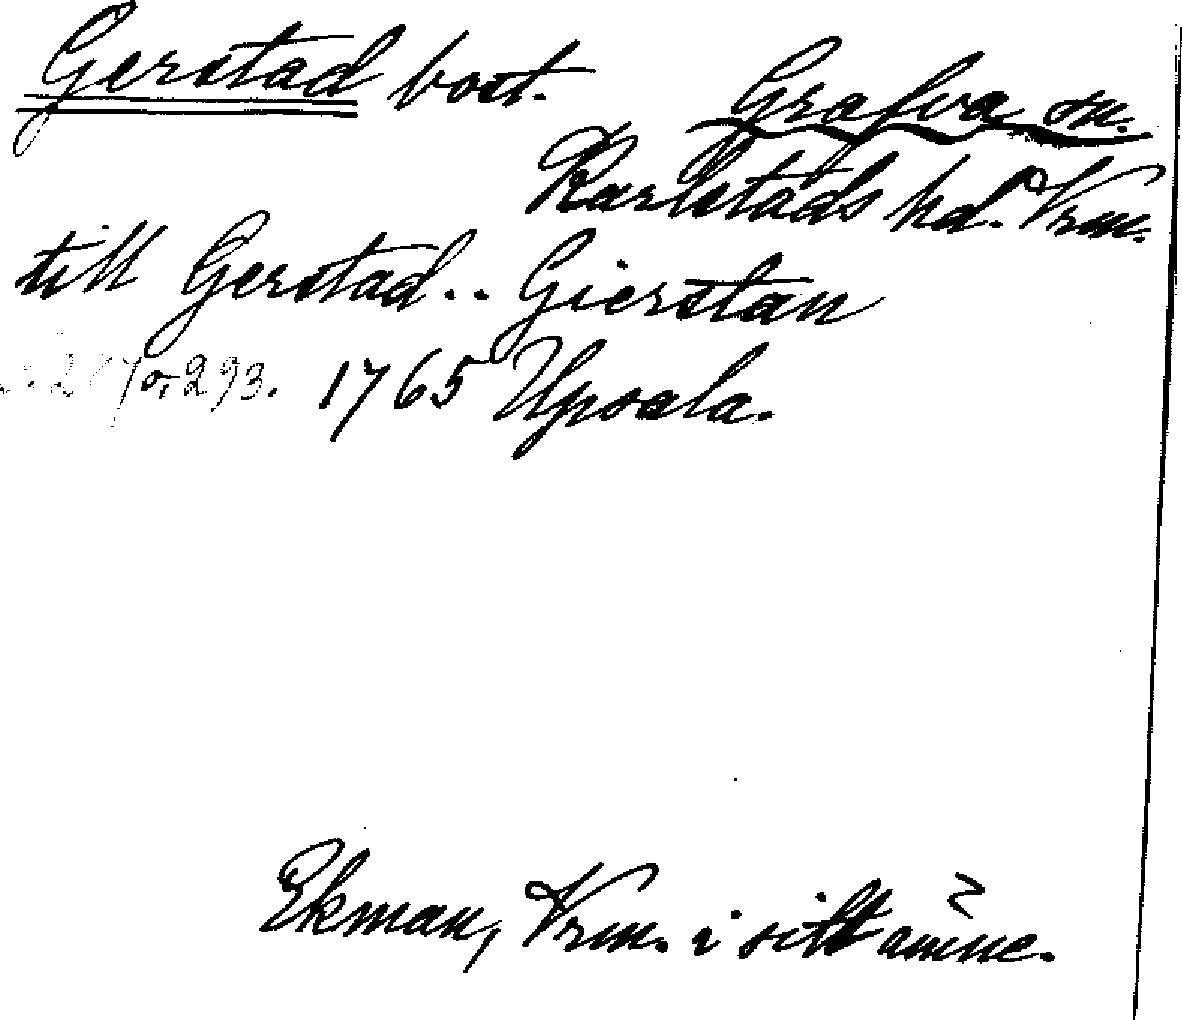 Gerstad bost. Grafva sn.
Karlstads hd. Vrm.
till Gerstad.. Gierstan
293. 1765 Upsala.
Ekman, Vrm. i sitt ämne.